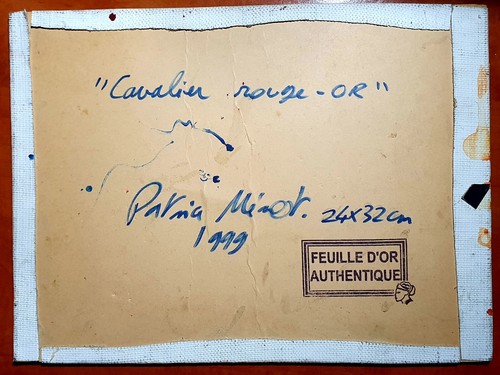 "Cavalier rouge-OR"
Patrice Minot. 24x32cm
1999
FEUILLE D'OR
AUTHENTIQUE